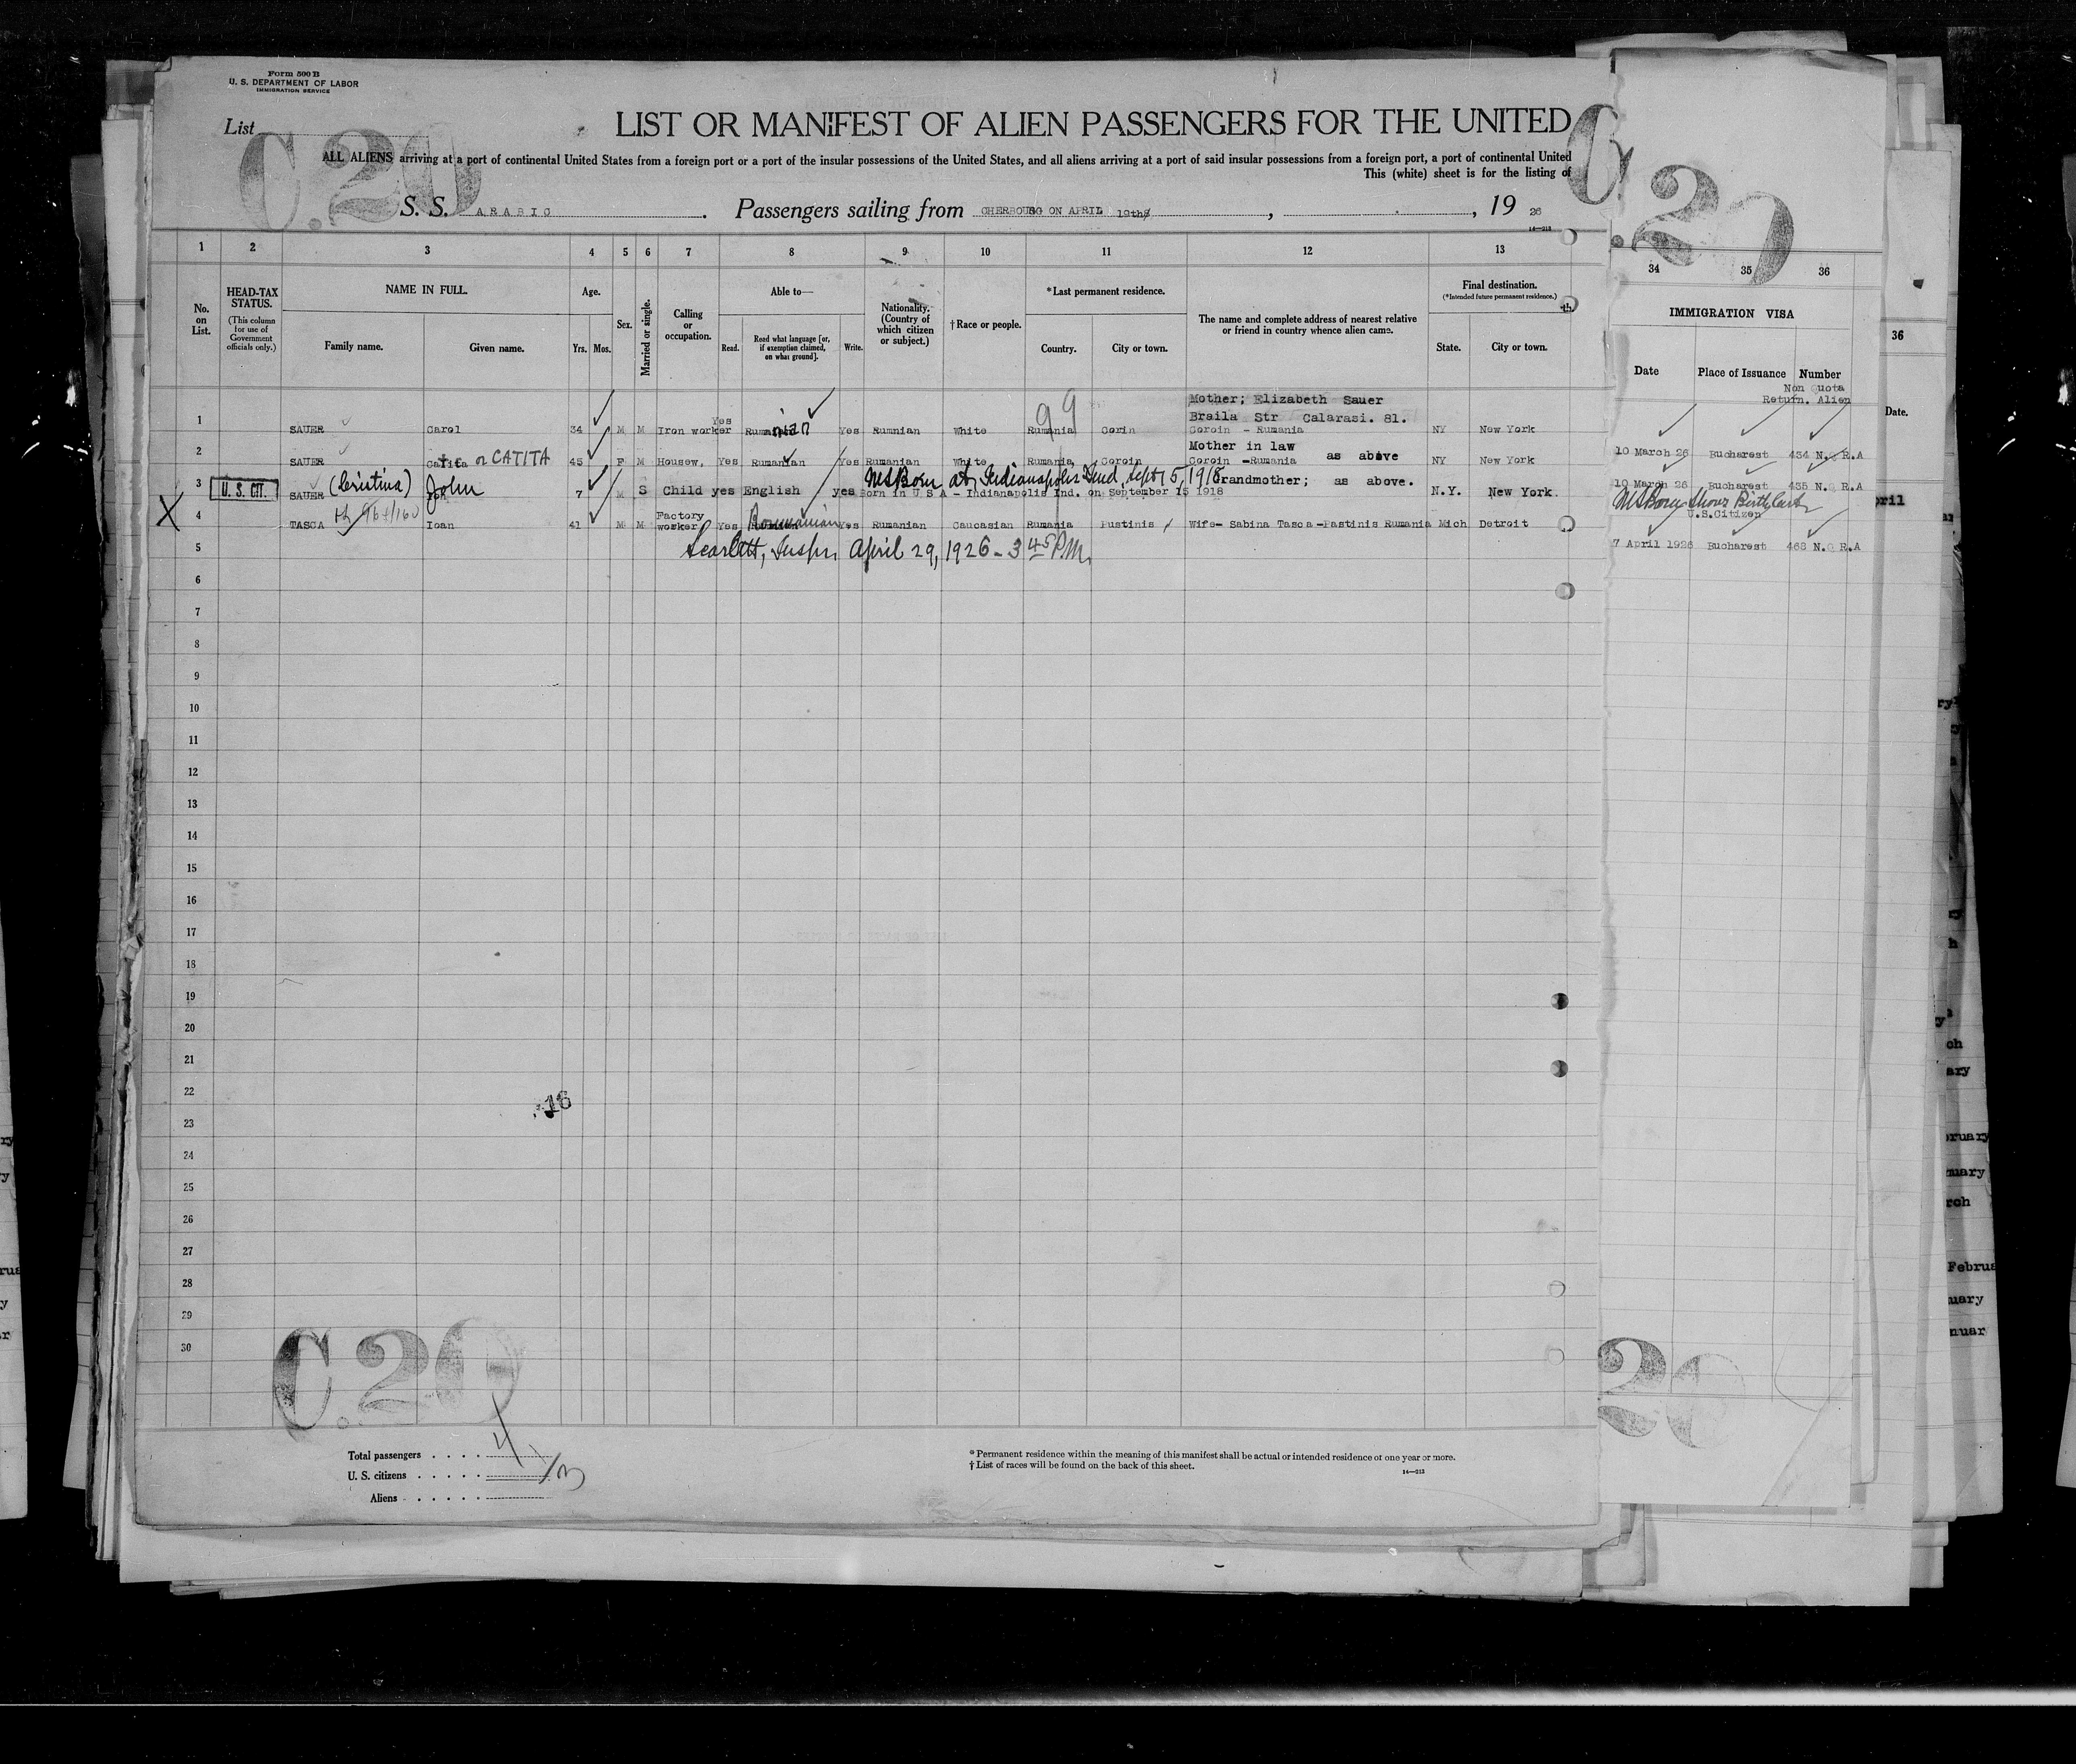 Form 500 B
U. S. DEPARTMENT OF LABOR
IMMIGRATION SERVICE
List
C.20
C.20
LIST OR MANIFEST OF ALIEN PASSENGERS FOR THE UNITED
ALL ALIENS arriving at a port of continental United States from a foreign port or a port of the insular possessions of the United States, and all aliens arriving at a port of said insular possessions from a foreign port, a port of continental United
This (white) sheet is for the listing of
S. S. ARABIC. Passengers sailing from CHERBOURG ON APRIL 19th, , 19 26
14—213
1 2 3 4 5 6 7 8 9 10 11 12 13 34 35 36
No. on List.
HEAD-TAX STATUS.
(This column for use of Government officials only.)
NAME IN FULL.
Family name. Given name.
Age.
Yrs. Mos.
Sex.
Married or single.
Calling or occupation.
Able to—
Read. Read what language [or, if exemption claimed, on what ground]. Write.
Nationality. (Country of which citizen or subject.)
†Race or people.
*Last permanent residence.
Country. City or town.
The name and complete address of nearest relative or friend in country whence alien came.
Final destination.
(*Intended future permanent residence.)
State. City or town.
IMMIGRATION VISA
Date Place of Issuance Number
Non Quota
Return. Alien
36
Date.
99
Mother; Elizabeth Sauer
Braila Str Calarasi. 81.
1 SAUER Carol 34 M M Iron worker Yes Rumanian Yes Rumnian White Rumania Corin Coroin - Rumania NY New York
10 March 26 Bucharest 434 N.Q R.A
Mother in law as above
2 SAUER Catita or CATITA 45 F M Housew, Yes Rumanian Yes Rumanian White Rumania, Coroin Coroin -Rumania NY New York
10 March 26 Bucharest 435 N.Q R.A
US Born at Indianapolis Ind, Sept 15, 1918
3 U. S. CIT. SAUER (Cristina) John 7 M S Child yes English yes Born in U S A - Indianapolis Ind. on September 15 1918 Grandmother; as above. N.Y. New York.
US Born Shows Birth Cert
U.S.Citizen
pril
X 4 TASCA Ioan 41 M M Factory worker Yes Roumanian Yes Rumanian Caucasian Rumania Pustinis Wife- Sabina Tasca -Pastinis Rumania Mich Detroit
7 April 1926 Bucharest 468 N.Q R.A
5 Scarlett, Inspr. April 29, 1926 - 3 45 P.M.
6
7
8
9
10
11
12
13
14
15
16
17
18
19
20
21
22
16
23
24
25
26
27
28
29
30
C.20
20
Total passengers . . . . 4
U. S. citizens . . . . . 1
Aliens . . . . . 3
* Permanent residence within the meaning of this manifest shall be actual or intended residence of one year or more.
† List of races will be found on the back of this sheet.
14—213